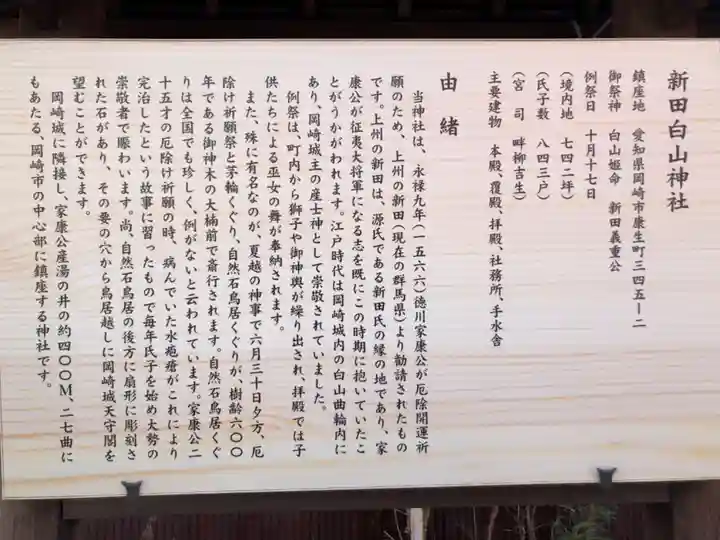 新田白山神社
鎮座地　愛知県岡崎市康生町三四五ー二
御祭神　白山姫命　新田義重公
例祭日　十月十七日
(境内地　七四二坪)
(氏子数　八四三戸)
(宮　司　畔柳吉生)
主要建物　本殿、覆殿、拝殿、社務所、手水舎
由緒
当神社は、永禄九年(一五六六)徳川家康公が厄除開運祈
願のため、上州の新田(現在の群馬県)より勧請されたもの
です。上州の新田は、源氏である新田氏の縁の地であり、家
康公が征夷大将軍になる志を既にこの時期に抱いていたこ
とがうかがわれます。江戸時代は岡崎城内の白山曲輪内に
あり、岡崎城主の産土神として崇敬されていました。
例祭は、町内から獅子や御神輿が繰り出され、拝殿では子
供たちによる巫女の舞が奉納されます。
また、殊に有名なのが、夏越の神事で六月三十日夕方、厄
除け祈願祭と茅輪くぐり、自然石鳥居くぐりが、樹齢六〇〇
年である御神木の大楠前で斎行されます。自然石鳥居くぐ
りは全国でも珍しく、例がないと云われています。家康公二
十五才の厄除け祈願の時、病んでいた水疱瘡がこれにより
完治したという故事に習ったもので毎年氏子を始め大勢の
崇敬者で賑わいます。尚、自然石鳥居の後方に扇形に彫刻さ
れた石があり、その要の穴から鳥居越しに岡崎城天守閣を
望むことができます。
岡崎城に隣接し、家康公産湯の井の約四〇〇M、二七曲に
もあたる、岡崎市の中心部に鎮座する神社です。